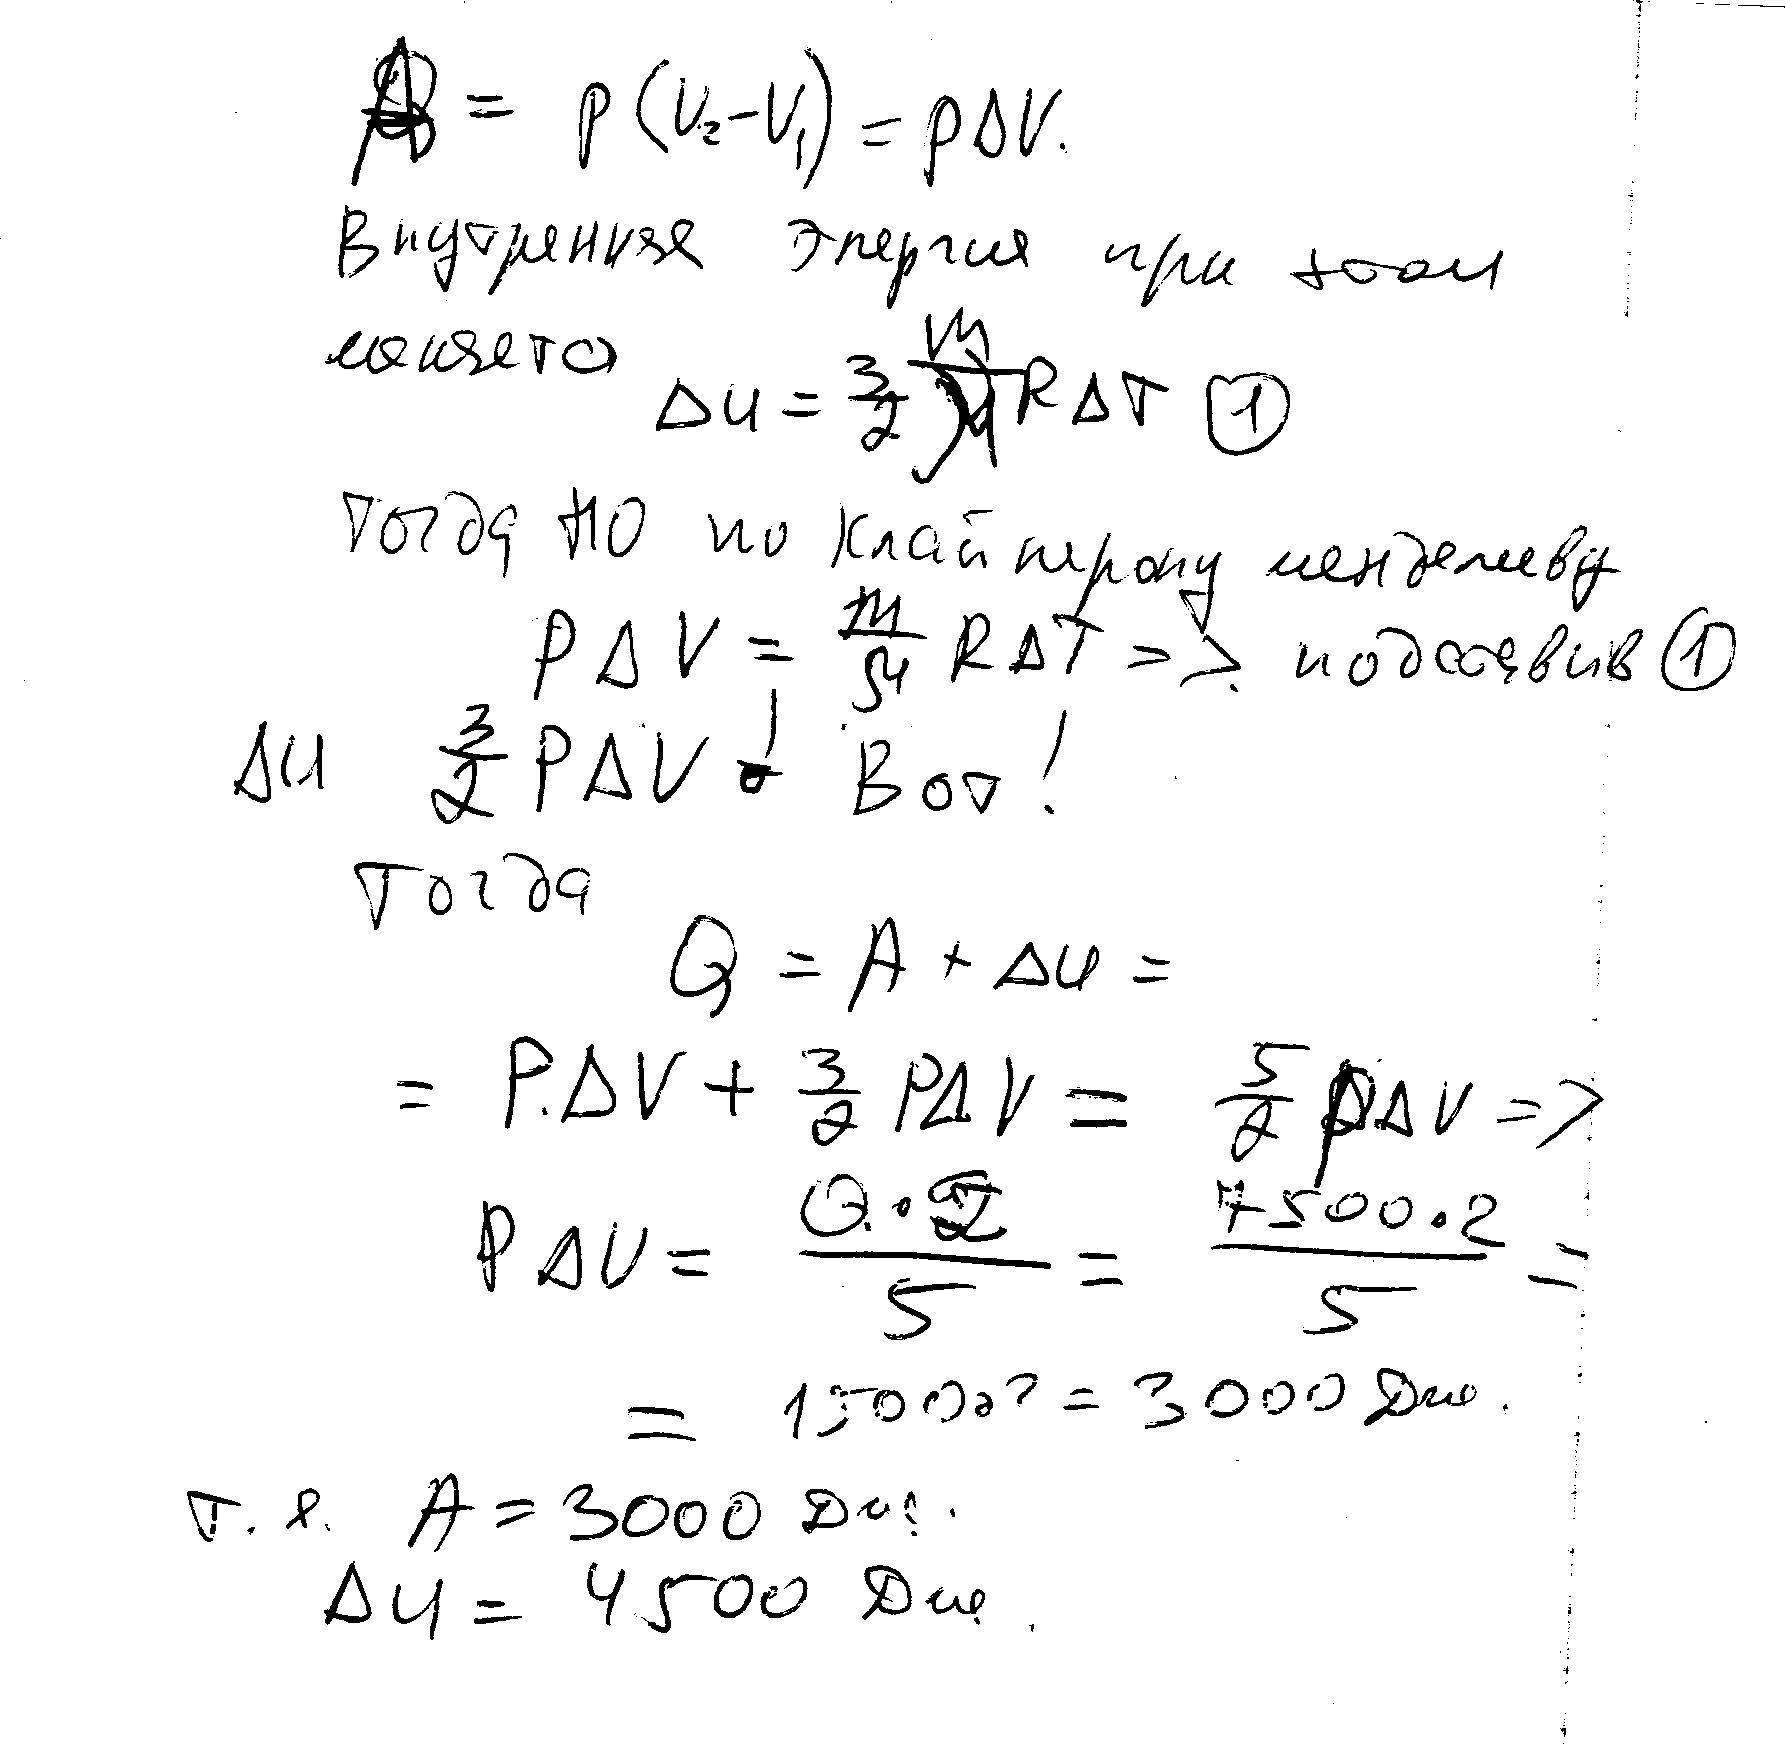 A = P(V₂-V₁) = PΔV.
Внутренняя энергия при этом
меняется
ΔU = 3/2 m/μ RΔT ①
тогда НО по Клайперону менделеву
PΔV = m/μ RΔT => подставив ①
ΔU 3/2 PΔV Вот!
Тогда
Q = A + ΔU =
= P.ΔV + 3/2 PΔV = 5/2 PΔV =>
PΔV = Q·2/5 = 7500·2/5 =
= 1500·2 = 3000 Дж.
т.е. A = 3000 Дж.
ΔU = 4500 Дж.